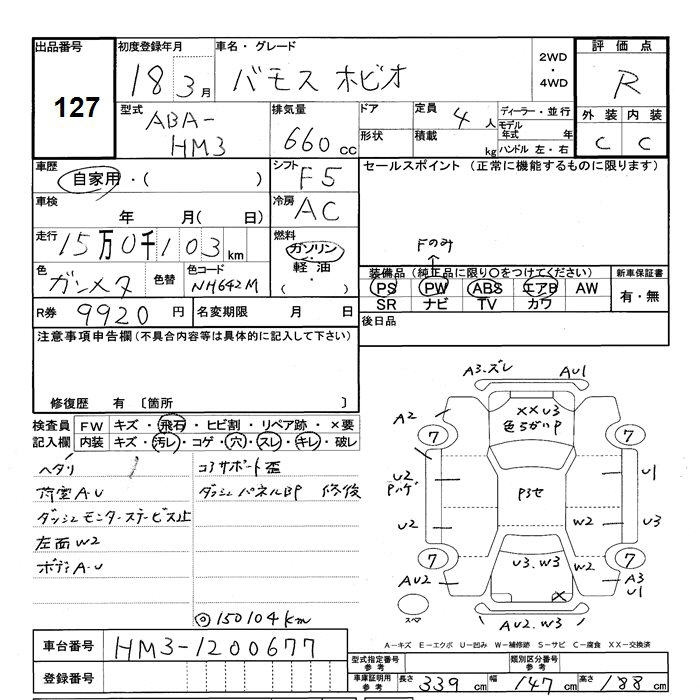 出品番号
127
初度登録年月
18 3月
車名・グレード
バモス ホビオ
2WD
・
4WD
評価点
R
外装 内装
C C
型式
ABA-
HM3
排気量
660 cc
ドア
形状
定員
4 人
積載
kg
ディーラー・並行
モデル年式 年
ハンドル 左・右
車歴
自家用・( )
シフト
F5
車検
年 月( 日)
冷房
AC
走行
15万0千103 km
燃料
ガソリン
・
軽油
( )
色
ガンメタ
色替
色コード
NH642M
R券
9920 円
名変期限 月 日
セールスポイント (正常に機能するものに限ります)
Fのみ
装備品 (純正品に限り○をつけてください)
PS PW ABS エアB AW
SR ナビ TV カワ
新車保証書
有・無
後日品
注意事項申告欄(不具合内容等は具体的に記入して下さい)
修復歴 有 〔箇所 〕
検査員
記入欄
FW キズ・飛石・ヒビ割・リペア跡・×要
内装 キズ・汚レ・コゲ・穴・スレ・キレ・破レ
ヘタリ
荷室A・U
ダッシュモニターステービス止
左面W2
ボディA・U
コアサポート歪
ダッシュパネルBP 修後
◎150104km
A3・ズレ AU1
A2
XXU3
色ちがいP
7 7
U2
Pハゲ
P3セ
U1
U2
W2
U3
7 7
U3.W3
W2
AU2
X
A3
U1
スペア
AU2.W3
A-キズ E-エクボ U-凹み W-補修跡 S-サビ C-腐食 XX-交換済
車台番号
HM3-1200677
登録番号
型式指定番号
参考
類別区分番号
参考
車庫証明用
参考
長さ 339 cm 幅 147 cm 高さ 188 cm